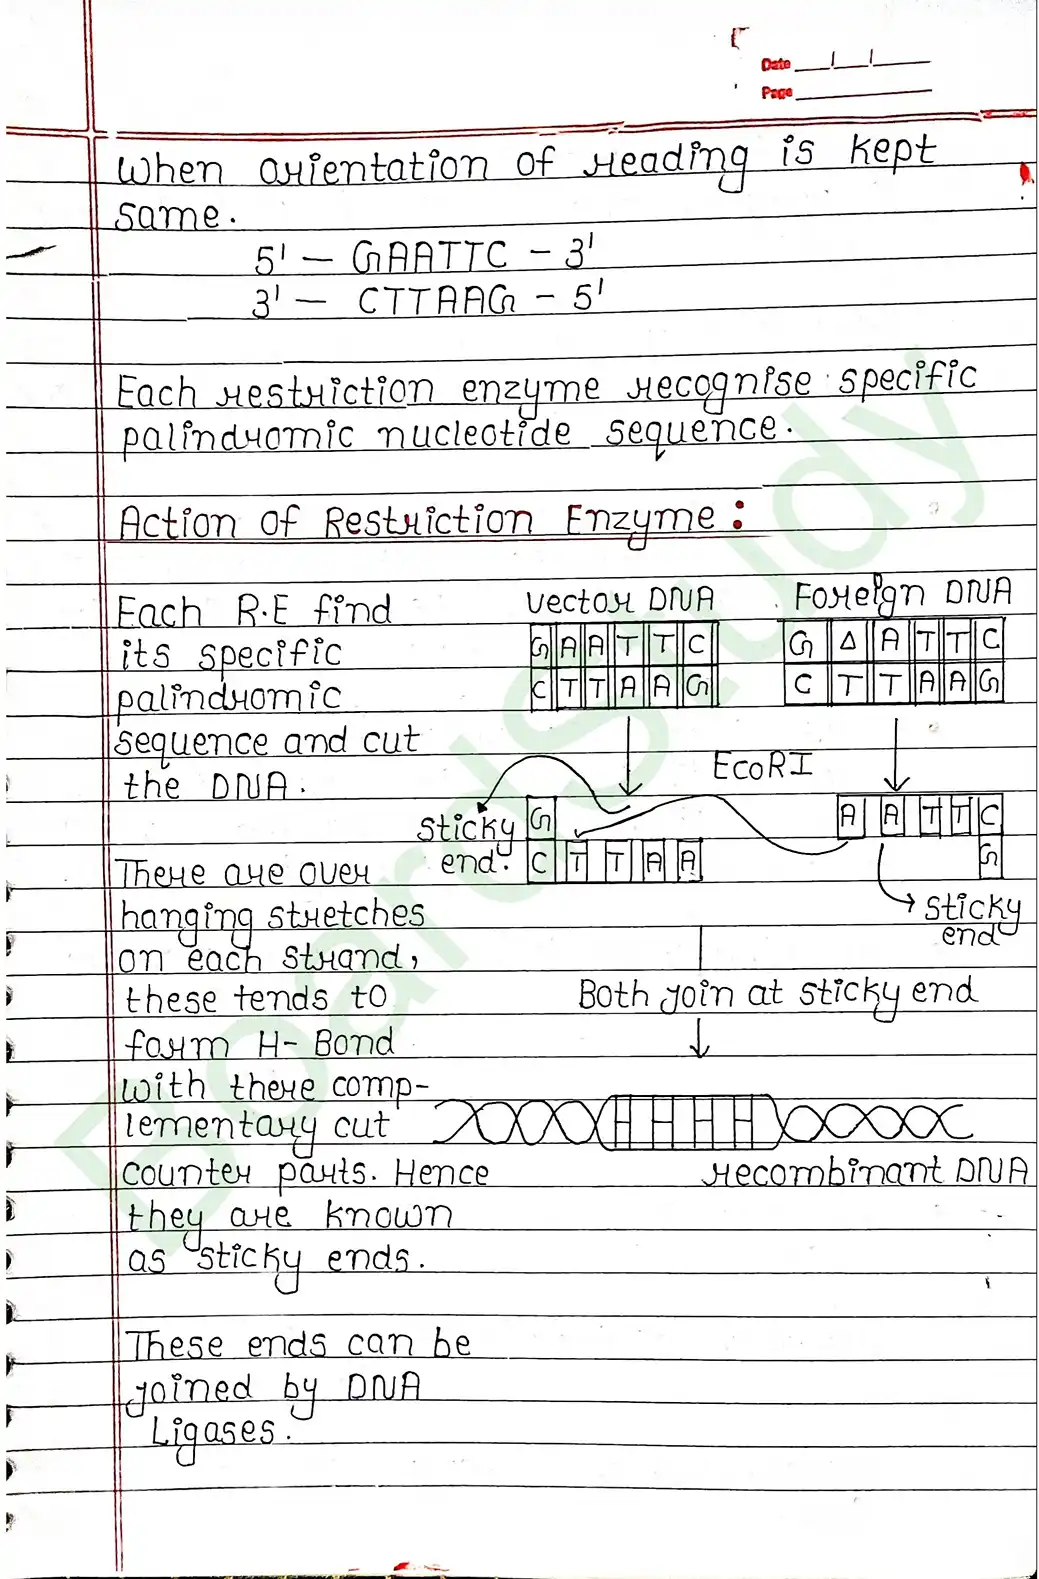 Date
Page
When orientation of reading is kept
same.
5' - GAATTC - 3'
3' - CTTAAG - 5'
Each restriction enzyme recognise specific
palindromic nucleotide sequence.
Action of Restriction Enzyme :
Each R.E find
its specific
palindromic
sequence and cut
the DNA.
There are over
hanging stretches
on each strand,
these tends to
form H-Bond
with there comp-
lementary cut
counter parts. Hence
they are known
as sticky ends.
These ends can be
joined by DNA
Ligases.
Vector DNA
G A A T T C
C T T A A G
Foreign DNA
G A A T T C
C T T A A G
EcoRI
sticky
end.
G
C T T A A
A A T T C
G
sticky
end
Both join at sticky end
recombinant DNA
BoardStudy